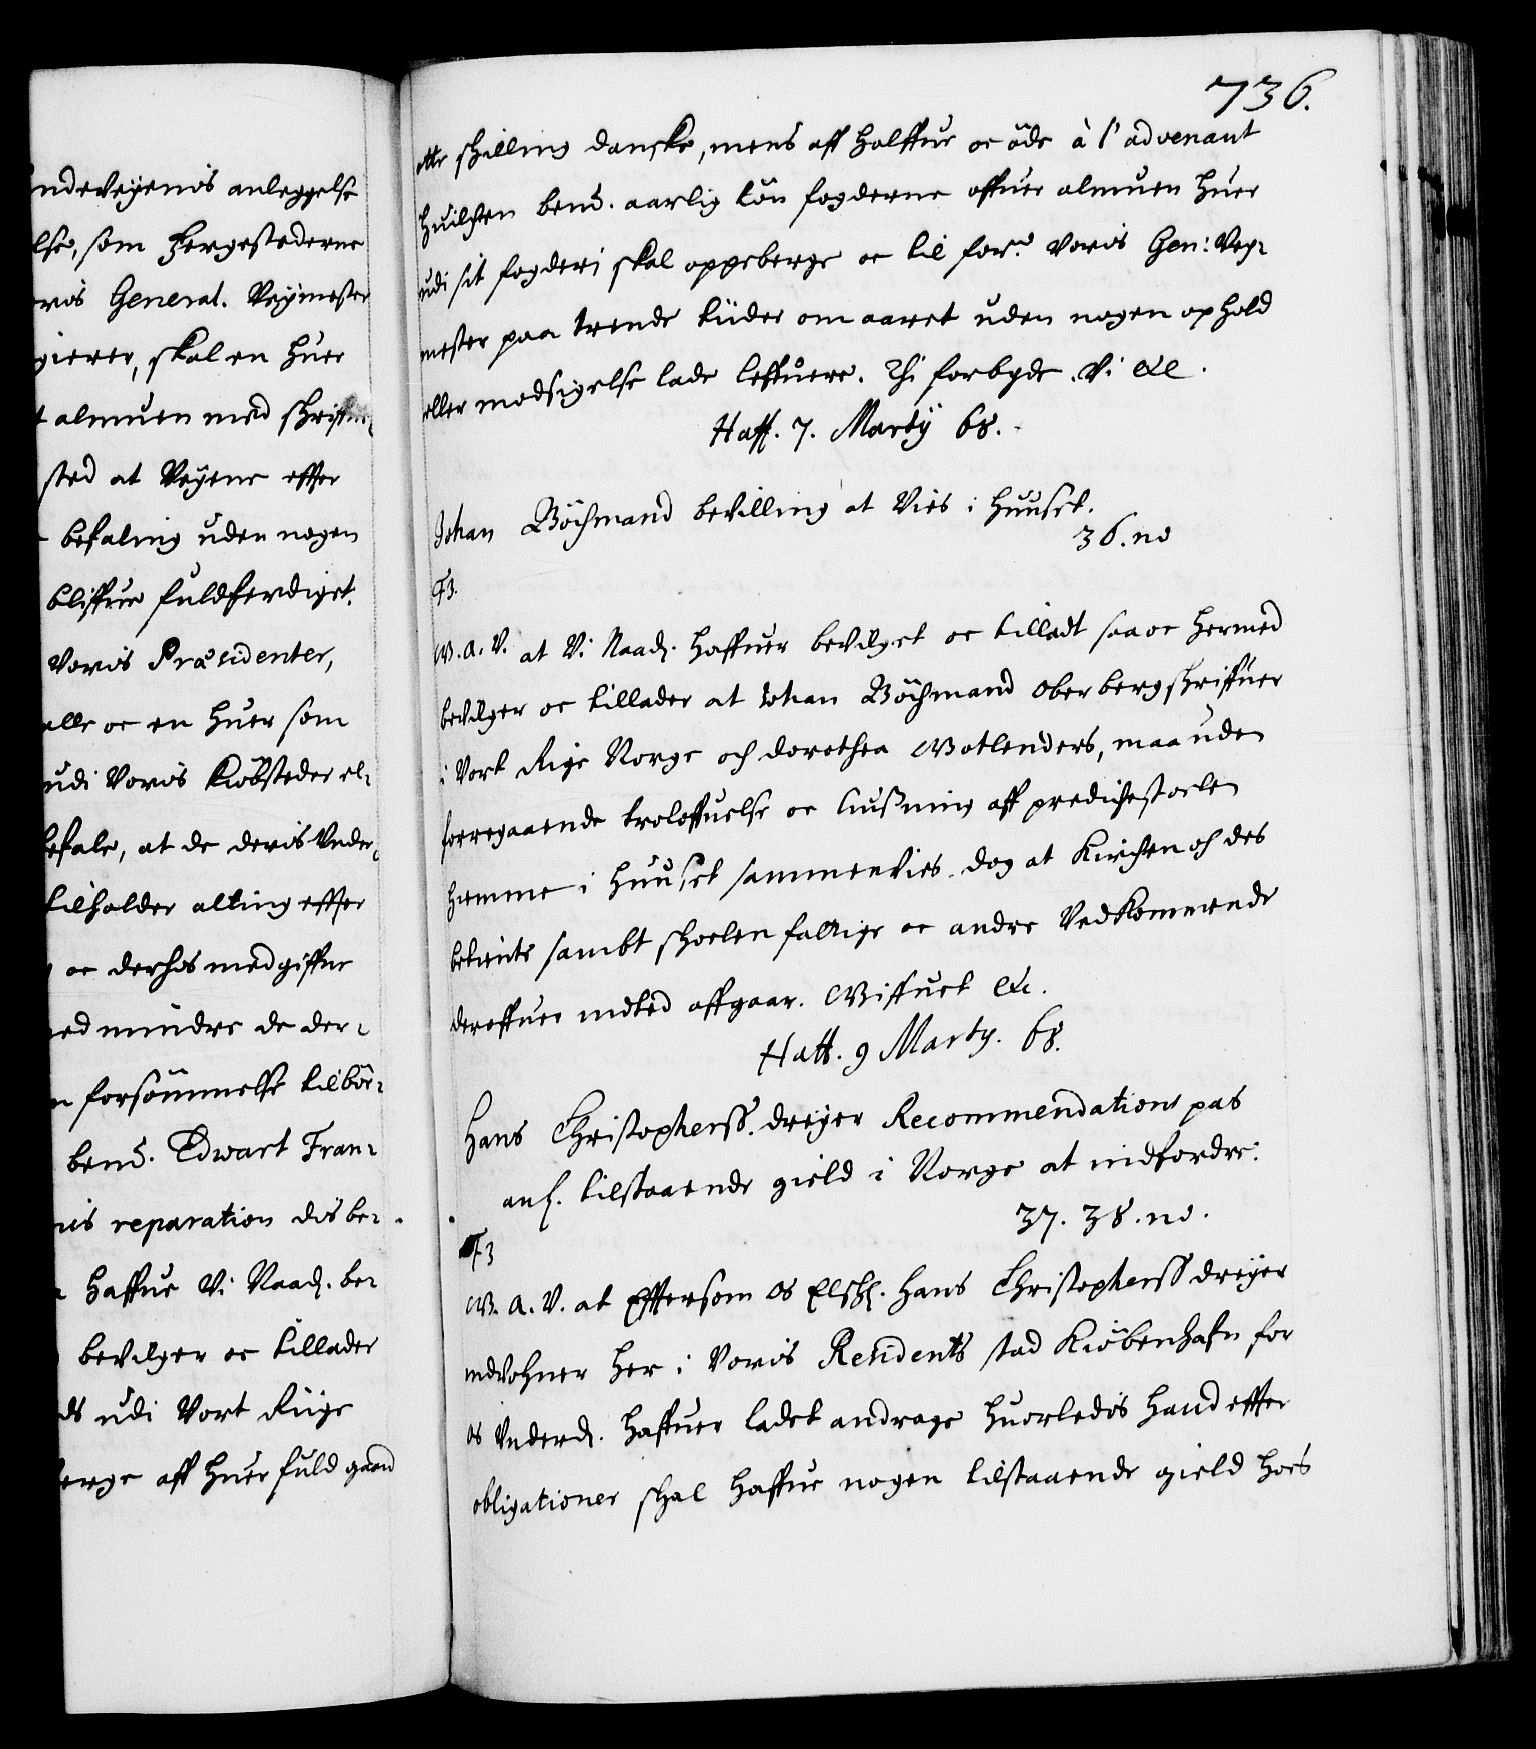 ndeveyenis anleggelse
lse, som Fergestederne
oris General. Veymester
gierer, skal en huer
t almuen med schrifft-
sted at Veyene effter
befaling uden nogen
bliffue fuldferdiget.
Voris Præsidenter,
alle oc en huer som
udi Voris Kiöbsteder el-
befale, at de deris Under-
tilholder alting effter
oc derhos med giffue
ed mindre de der-
n forsömmelse tilbör-
bend. Edwart Fran-
nis reparation dis be-
haffue Vi Naad. be-
bevilger oc tillader
ds udi Vort Riige
erge aff huer fuld gaard
736.
otte schilling danske, mens aff halffue oc öde à l'advenant
huilchen bend. aarlig lön fogderne offuer almuen huer
udi sit fogderi skal oppeberge oc til ford. Voris Gen: Vey-
mester paa trende tiider om aaret uden nogen ophold
eller modsigelse lade leffuere. Thi forbyde Vi &c.
Haff. 7. Marty 68.
Johan Böchmand bevilling at Vies i huuset.
36. no
F3.
W. A. V. at Vi Naad. haffuer bevilget oc tilladt saa oc hermed
bevilger oc tillader at Johan Böchmand Oberbergschriffuer
i Vort Rige Norge och Dorothea Wotlenders, maa uden
forregaaende troloffuelse oc liusning aff predichestoelen
hiemme i huuset sammenvies. dog at Kirchen och des
betiente sambt schoelen fattige oc andre Vedkommende
deroffuer indted affgaar. Wiffuet &c.
Haff. 9 Marty. 68.
Hans Christopherss. dreyer Recommendations pas
anl. tilstaaende gield i Norge at indfordre.
37. 38. no.
F3
W. A. V. at Efftersom Os Elschl. Hans Christopherss dreyer
indvohner her i Voris Residents stad Kiöbenhafn for
os Underd. haffuer ladet andrage huorledis hand effter
obligationer schal haffue nogen tilstaaende gield hoes